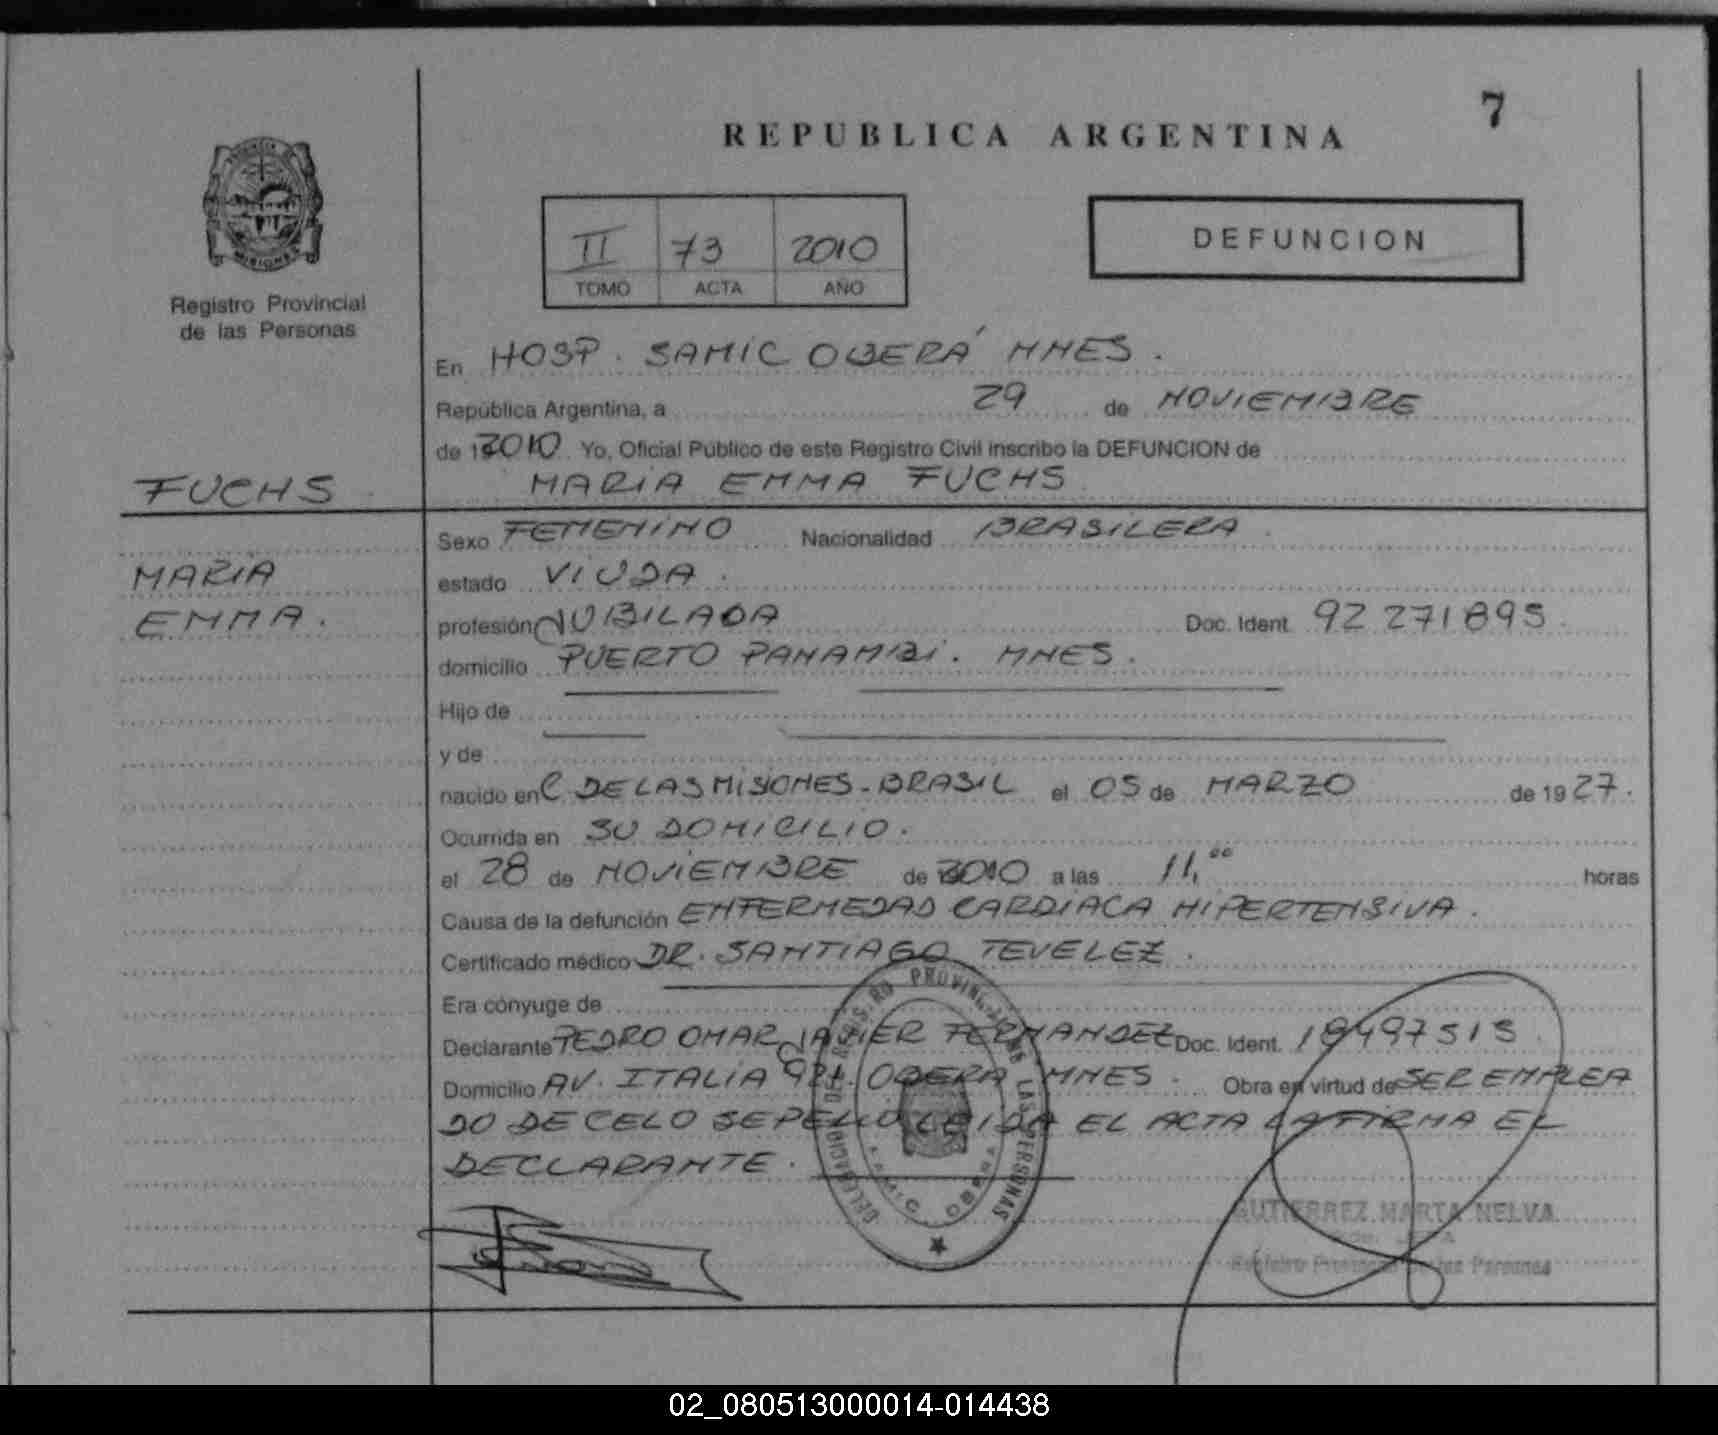 7
REPUBLICA ARGENTINA
MISIONES
Registro Provincial
de las Personas
II 73 2010
TOMO ACTA AÑO
DEFUNCION
En HOSP. SAMIC OBERÁ MNES.
República Argentina, a 29 de NOVIEMBRE
de 2010 Yo, Oficial Público de este Registro Civil inscribo la DEFUNCION de
FUCHS
MARIA EMMA FUCHS
MARIA
EMMA.
Sexo FEMENINO Nacionalidad BRASILERA
estado VIUDA.
profesión JUBILADA Doc. Ident. 92 271895.
domicilio PUERTO PANAMBI. MNES.
Hijo de
y de
nacido en C DE LAS MISIONES-BRASIL el 05 de MARZO de 1927.
Ocurrida en SU DOMICILIO.
el 28 de NOVIEMBRE de 2010 a las 11,00 horas
Causa de la defunción ENFERMEDAD CARDIACA HIPERTENSIVA.
Certificado médico DR. SANTIAGO TEVELEZ.
Era cónyuge de
Declarante PEDRO OMAR JAVIER FERNANDEZ Doc. Ident. 18497515.
Domicilio AV. ITALIA 921. OBERA MNES. Obra en virtud de SER EMPLEA
DO DE CELO SEPELIO LEIDA EL ACTA LA FIRMA EL
DECLARANTE.
PERSONAS
OBERA
GUTIERREZ MARTA NELVA
Registro Provincial de las Personas
02_080513000014-014438